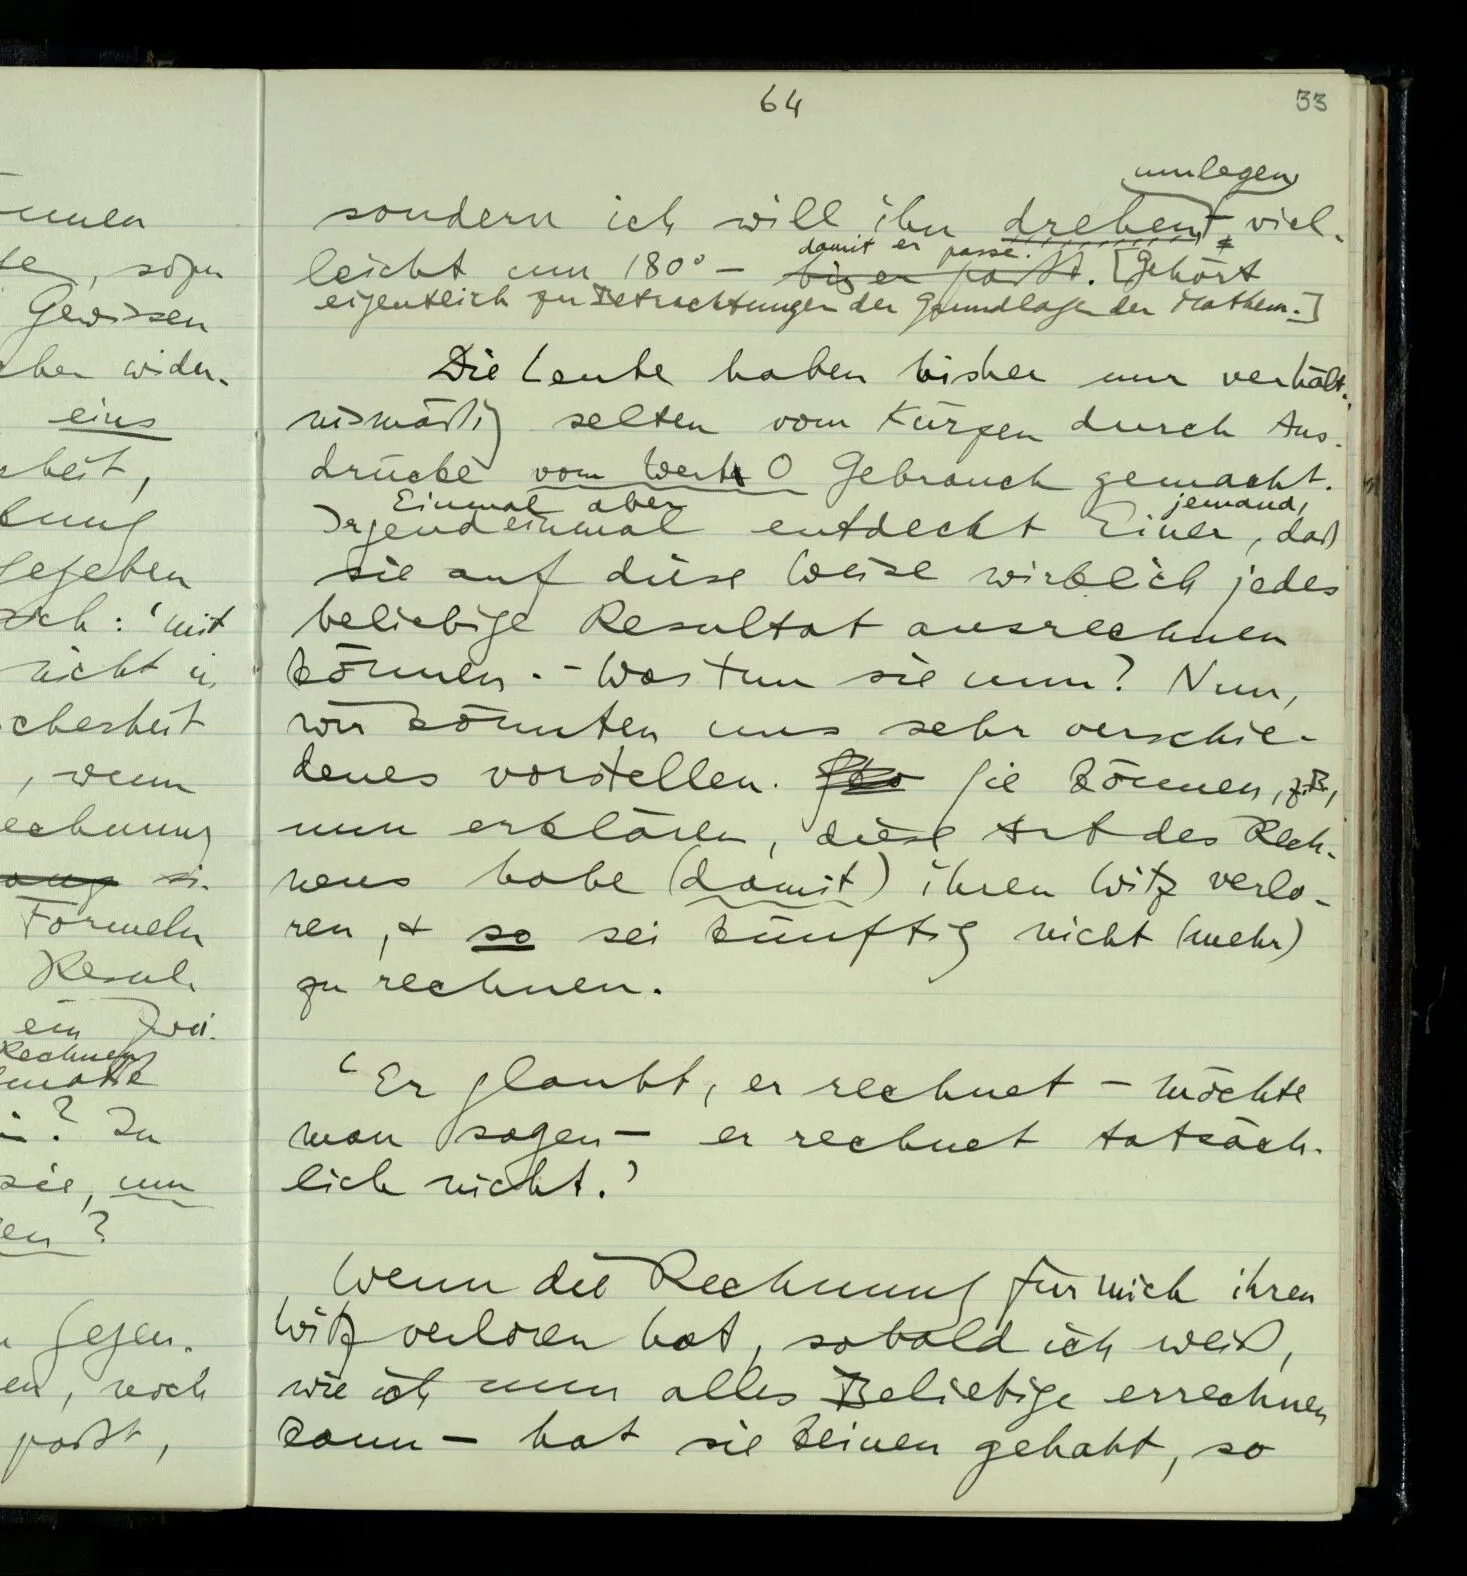 64
33
umlegen
sondern ich will ihn drehen, viel-
damit er passe.
leicht um 180° – bis er paßt. [Gehört
eigentlich zu Betrachtungen der Grundlagen der Mathem.]
Die Leute haben bisher nur verhält-
nismäßig selten vom Kürzen durch Aus-
drücke vom Werte 0 Gebrauch gemacht.
Einmal aber jemand,
Irgendeinmal entdeckt Einer, daß
sie auf diese Weise wirklich jedes
beliebige Resultat ausrechnen
können. – Was tun sie nun? Nun,
wir könnten uns sehr verschie-
denes vorstellen. Sie können, z.B.,
nun erklären, diese Art des Rech-
nens habe (damit) ihren Witz verlo-
ren, + so sei künftig nicht (mehr)
zu rechnen.
‘Er glaubt, er rechnet – möchte
man sagen – er rechnet tatsäch-
lich nicht.’
Wenn die Rechnung für mich ihren
Witz verloren hat, sobald ich weiß,
wie ich nun alles Beliebige errechnen
kann – hat sie keinen gehabt, so
, sogar
Gewissen
wider-
eins
gegeben
sich: ‘mit
nicht in
, wenn
Formeln
Resul-
ein Zwei-
? In
sie, um
gegen-
, noch
paßt,